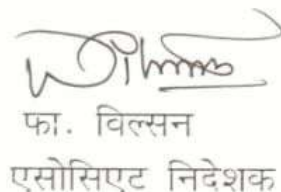 फा. विल्सन
एसोसिएट निदेशक